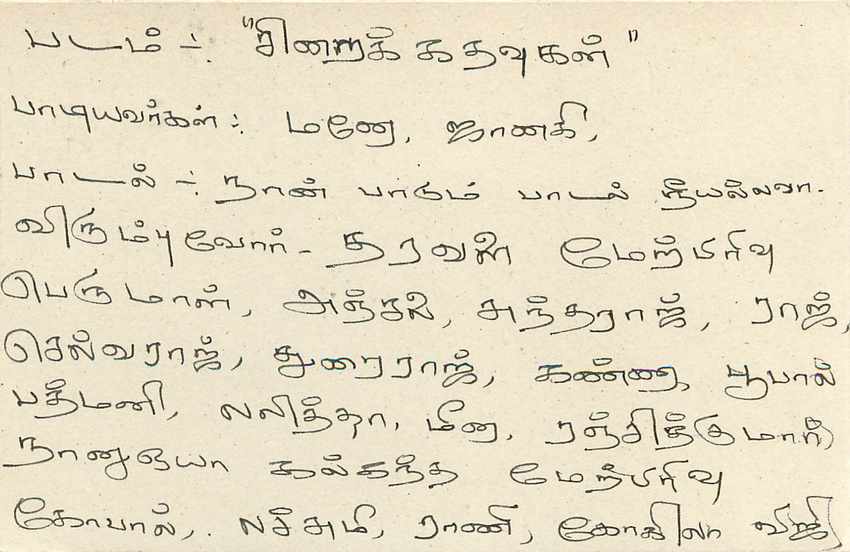 படம் -:- "சிறைக் கதவுகள்"
பாடியவர்கள் -:- மனோ, ஜானகி,
பாடல் -:- நான் பாடும் பாடல் நீயல்லவா.
விரும்புவோர் - தரவளை மேற்பிரிவு
பெருமாள், அஞ்சலி, சுந்தராஜ், ராஜ்,
செல்வராஜ், துரைராஜ், கண்ணா, பூபால்
பத்மணி, லலித்தா, மீனா, ரஞ்சித்குமார்,
நானுஓயா கல்கந்த மேற்பிரிவு
கோபால், லச்சுமி, ராணி, கோகிலா விஜி,